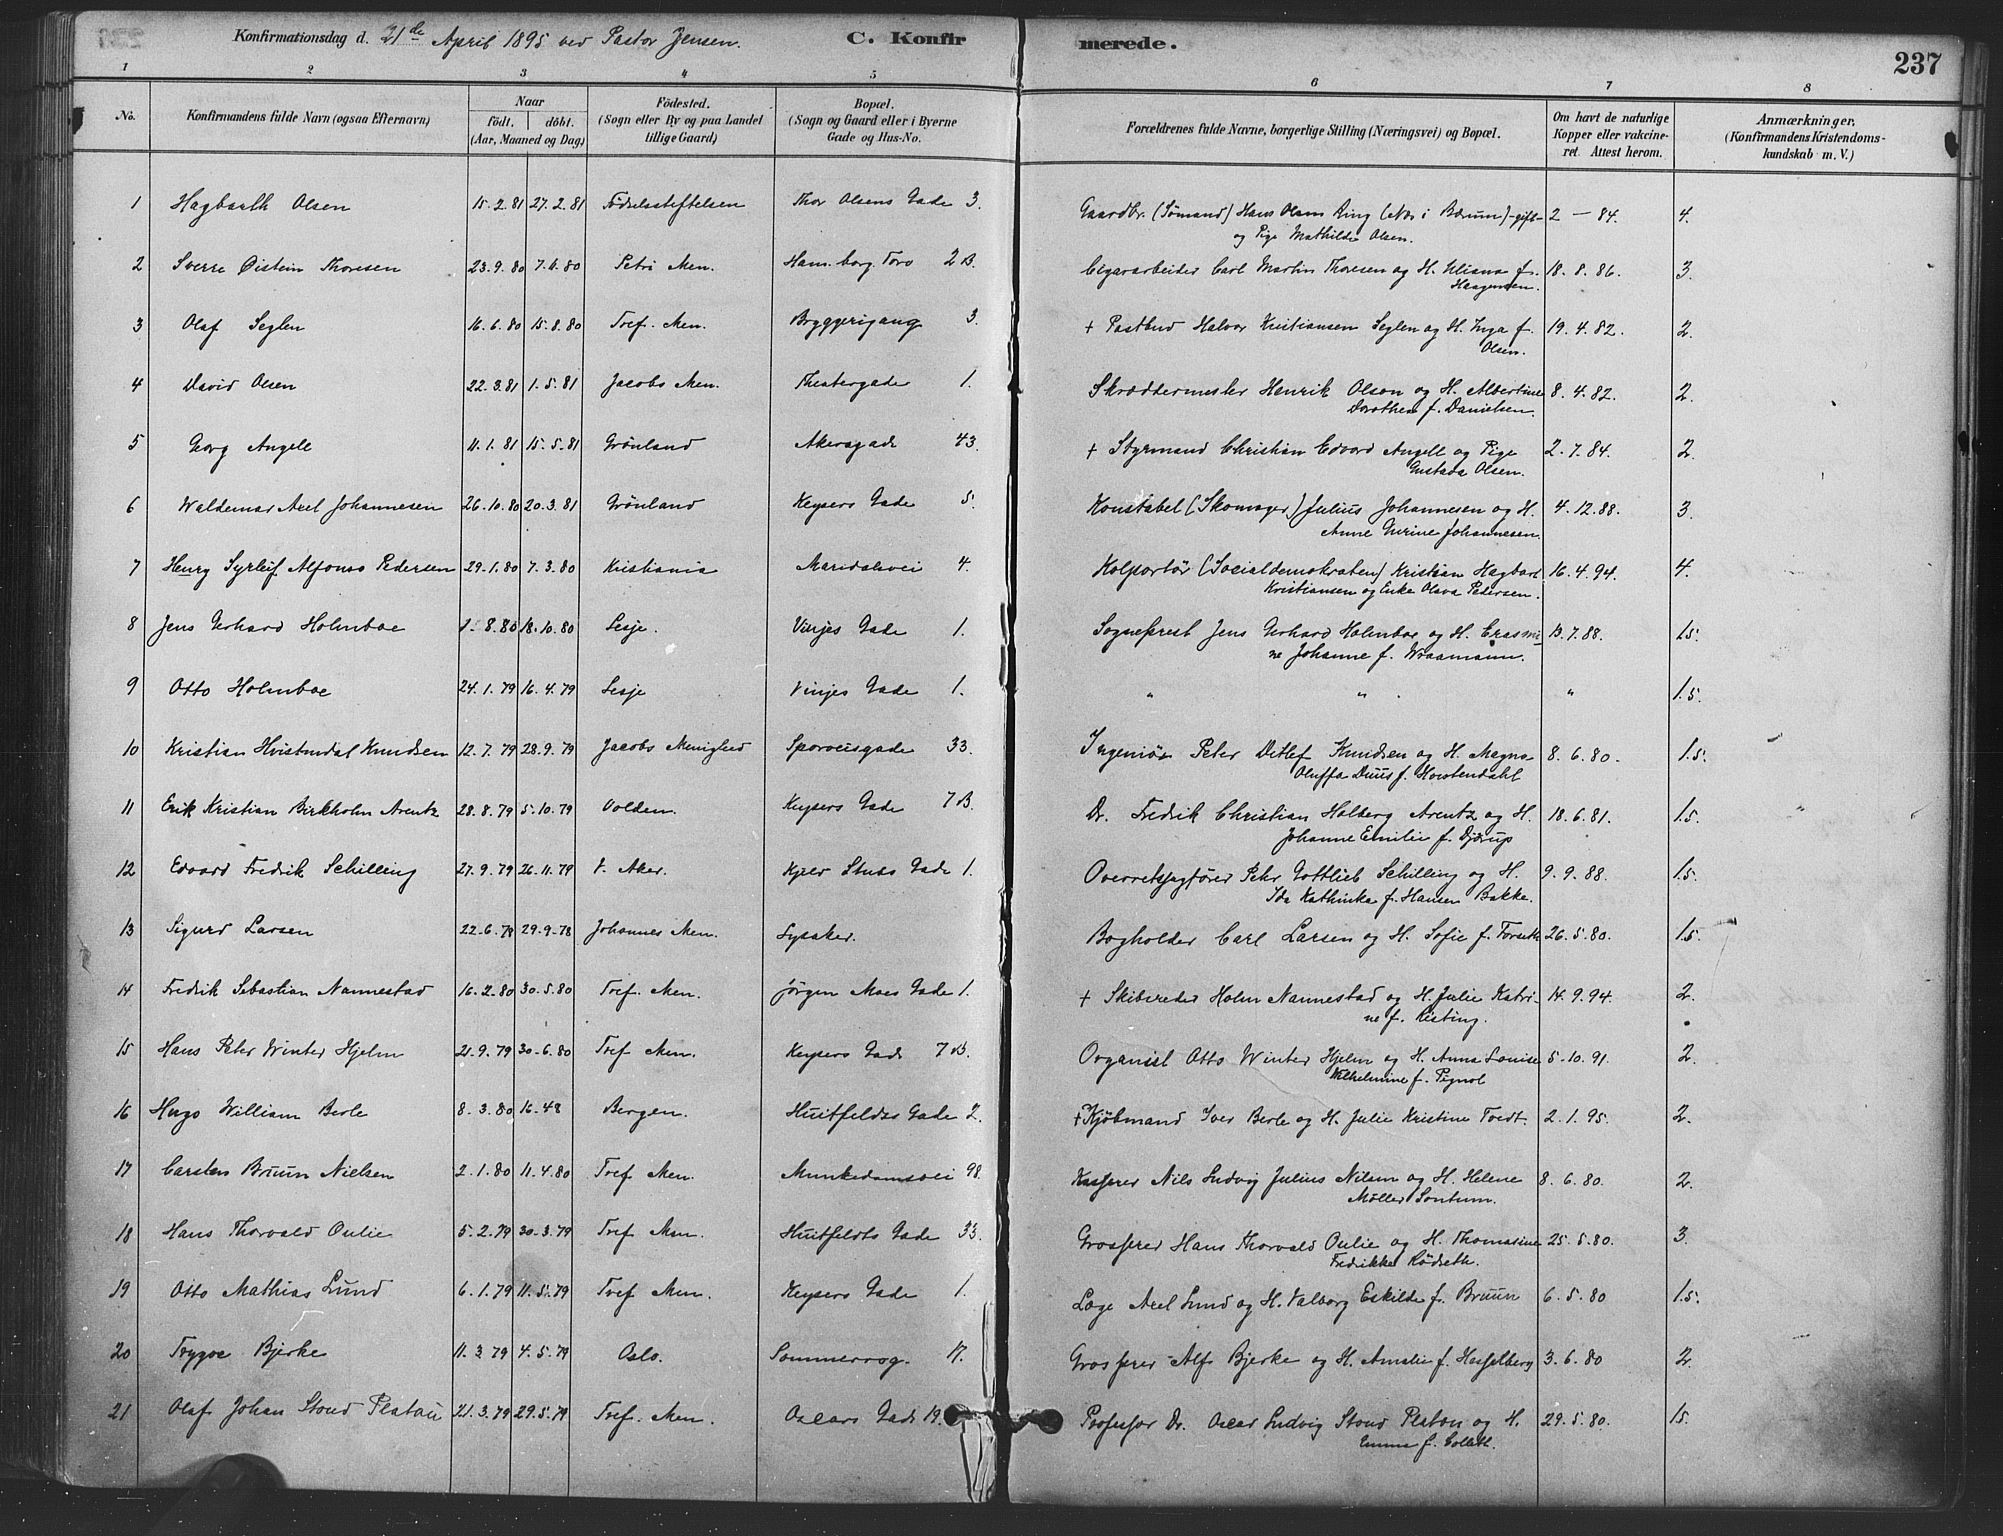 Konfirmationsdag d. 21de April 1895 ved Pastor Jensen. C. Konfirmerede. 237
1 2 3 4 5 6 7 8
No. Konfirmandens fulde Navn (ogsaa Efternavn) Naar födt. döbt. (Aar, Maaned og Dag) Födested. (Sogn eller By og paa Landet tillige Gaard) Bopæl. (Sogn og Gaard eller i Byerne Gade og Hus-No. Forældrenes fulde Navne, borgerlige Stilling (Næringsvei) og Bopæl. Om havt de naturlige Kopper eller vakcineret. Attest herom. Anmærkninger, (Konfirmandens Kristendomskundskab m. V.)
1 Hagbarth Olsen 15.2.81 27.2.81 Födselsstiftelsen Thor Olsens Gade 3. Gaardbr. (Sömand) Hans Olsen Ring (Næs i Bærum) - gift - 2 - 84. 4.
og Pige Mathilde Olsen.
2 Sverre Øistein Thoresen 23.9.80 7.11.80 Petri Men. Ham.borg.Torv 2 B. Cigararbeider Carl Martin Thoresen og H. Uliana f. 18.8.86. 3.
Haagensen.
3 Olaf Seglen 16.6.80 15.8.80 Tref. Men. Bryggerigang 3. + Postbud Halvor Kristiansen Seglen og H. Inga f. 19.4.82. 2.
Olsen.
4 David Olsen 22.3.81 1.5.81 Jacobs Men. Theatergade 1. Skræddermester Henrik Olsen og H. Albertine 8.4.82. 2.
Dorothea f. Danielsen.
5 Georg Angell 11.1.81 15.5.81 Grönland Akersgade 43. + Styrmand Christian Edvard Angell og Pige 2.7.84. 2.
Gustava Olsen.
6 Waldemar Axel Johannesen 26.10.80 20.3.81 Grönland Keysers Gade 5. Konstabel (Skomager) Julius Johannesen og H. 4.12.88. 3.
Anne Gurine Johannesen.
7 Henry Syrleif Alfonso Pedersen 29.1.80 7.3.80 Kristiania Maridalsvei 4. Kolportör (Socialdemokraten) Kristian Hagbart 16.4.94. 4.
Kristiansen og Enke Olava Pedersen.
8 Jens Gerhard Holmboe 1.8.80 18.10.80 Lesje. Vinjes Gade 1. Sogneprest Jens Gerhard Holmboe og H. Erasmi- 13.7.88. 1.5.
ne Johanne f. Wraamann.
9 Otto Holmboe 24.1.79 16.4.79 Lesje Vinjes Gade 1. " " " 1.5.
10 Kristian Hvistendal Knudsen 12.7.79 28.9.79 Jacobs Menighed Sporveisgade 33. Ingeniör Peter Ditlef Knudsen og H. Magna 8.6.80. 1.5.
Oluffa Duus f. Hvistendahl
11 Erik Kristian Birkholm Arentz 28.8.79 5.10.79 Volden. Keysers Gade 7 B. Dr. Fredrik Christian Holberg Arentz og H. 18.6.81. 1.5.
Johanne Emilie f. Djörup
12 Edvard Fredrik Schilling 27.9.79 26.11.79 V. Aker. Kjeld Stubs Gade 1. Overretssagförer Peter Gottlieb Schilling og H. 9.9.88. 1.5.
Ida Kathinka f. Hansen Bakke.
13 Sigurd Larsen 22.6.78 29.9.78 Johannes Men. Lysaker. Bogholder Carl Larsen og H. Sofie f. Forseth 26.5.80. 1.5.
14 Fredrik Sebastian Nannestad 16.2.80 30.5.80 Tref. Men. Jörgen Moes Gade 1. + Skibsreder Holm Nannestad og H. Julie Katri- 14.9.94. 2.
ne f. Risting.
15 Hans Peter Winter Hjelm 21.9.79 30.6.80 Tref. Men. Keysers Gade 7 B. Organist Otto Winter Hjelm og H. Anna Louise 5.10.91. 2.
Wilhelmine f. Pignol
16 Hugo William Berle 8.3.80 16.48 Bergen. Huitfeldts Gade 2. + Kjöbmand Iver Berle og H. Julie Kristine Tvedt. 2.1.95. 2.
17 Carsten Bruun Nielsen 2.1.80 11.4.80 Tref. Men. Munkedamsvei 98. Kasserer Nils Ludvig Julius Nilsen og H. Helene 8.6.80. 2.
Möller Sontum.
18 Hans Thorvald Oulie 5.2.79 30.3.79 Tref. Men. Huitfeldts Gade 33. Grosserer Hans Thorvald Oulie og H. Thomasine 25.5.80. 3.
Fredrikke Rödseth.
19 Otto Mathias Lund 6.1.79 11.5.79 Tref. Men. Keysers Gade 1. Læge Axel Lund og H. Valborg Eskilde f. Bruun 6.5.80 1.5.
20 Trygve Bjerke 11.3.79 4.5.79 Oslo. Sommerrog. 17. Grosserer Alf Bjerke og H. Amalie f. Hasselberg 3.6.80 2.
21 Olaf Johan Stoud Platou 21.3.79 29.5.79 Tref. Men. Oscars Gade 19. Professor Dr. Oscar Ludvig Stoud Platou og H. 29.5.80. 1.5.
Emma f. Collett.